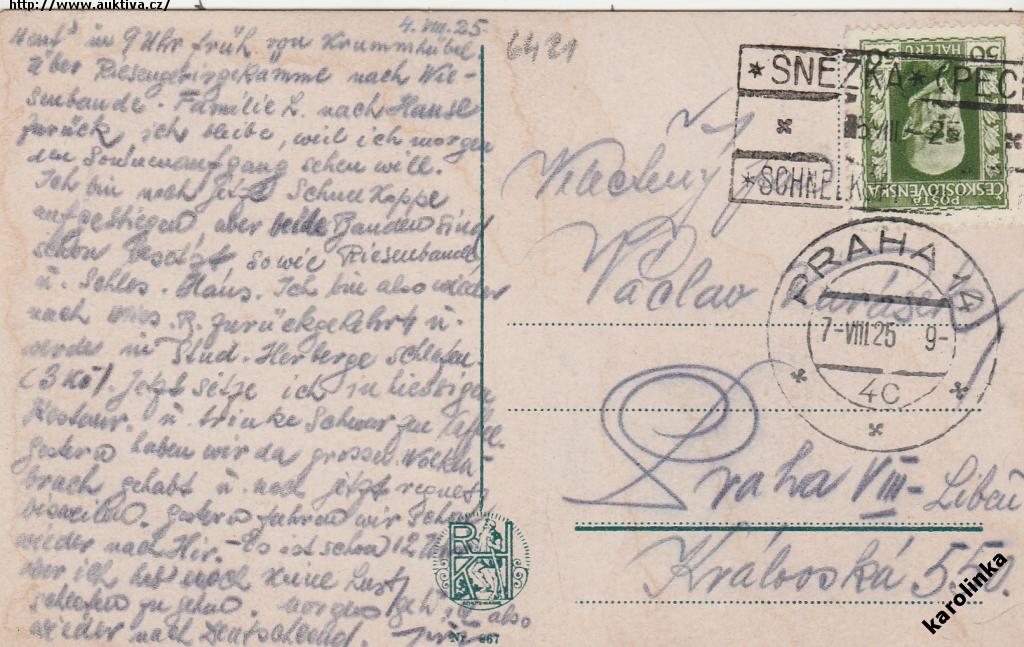 http://www.auktiva.cz/
4.VIII.25
Heut' im 9 Uhr früh von Krummhübel
über Riesengebirgskamme nach Wie-
senbaude. Familie L. nach Hause
zurück ich bleibe, weil ich morgen
den Sonnenaufgang sehen will.
Ich bin noch jetzt Schneekoppe
aufgestiegen aber beide Bauden sind
schon besetzt sowie Riesenbaude
u. Schles. Haus. Ich bin also wieder
nach R. zurückgekehrt u.
werde in Stud. Herberge schlafen
(3 Kč). Jetzt sitze ich in hiesigen
Restaur. u. trinke Schwarzen Kaffee.
Gestern haben wir da grossen Wolken
bruch gehabt u. noch jetzt regnet
bisweilen. Gestern fahren wir schon
wieder nach Hir. - Es ist schon 12 Uhr
aber ich hab' noch keine Lust
schlafen zu gehn. Morgen geh' ich also
wieder nach Deutschland.
6421
*SNĚŽKA*(PEC
*SCHNEEK
50 HALÉŘŮ 50
POŠTA
ČESKOSLOVENSKÁ
PRAHA 14
7-VIII.25 9-
4C
Vážený
Václav
Praha VIII-Libeň
Královská 550.
R
Nr. 867
karolinka